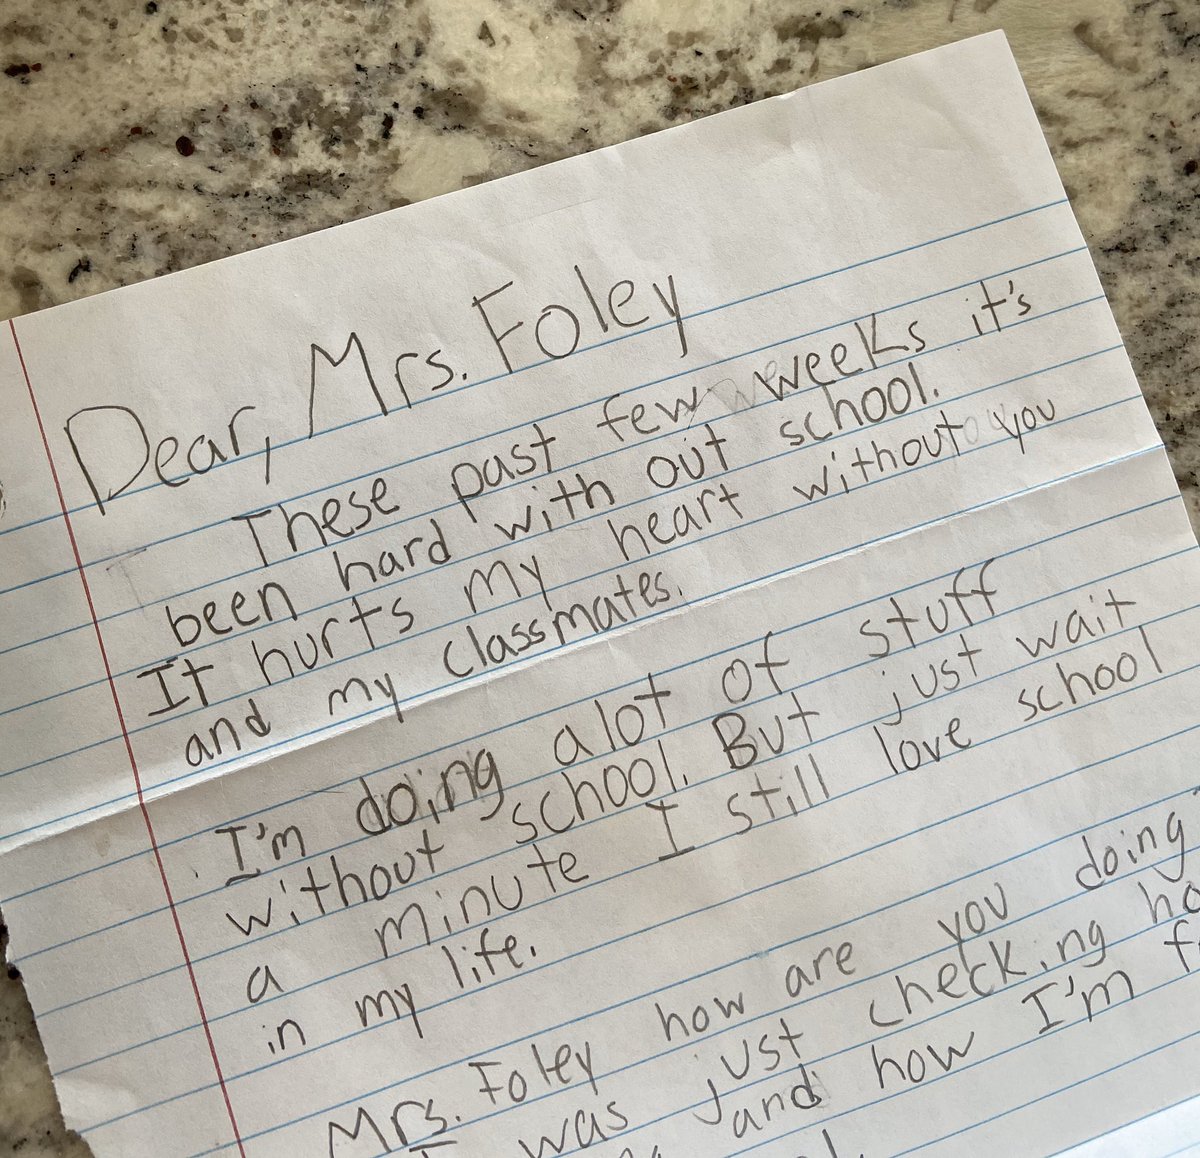 Dear, Mrs. Foley
These past few weeks it's
been hard with out school.
It hurts my heart without you
and my classmates.
I'm doing alot of stuff
without school. But just wait
a minute I still love school
in my life.
Mrs. Foley how are you doing
was just checking
and how I'm